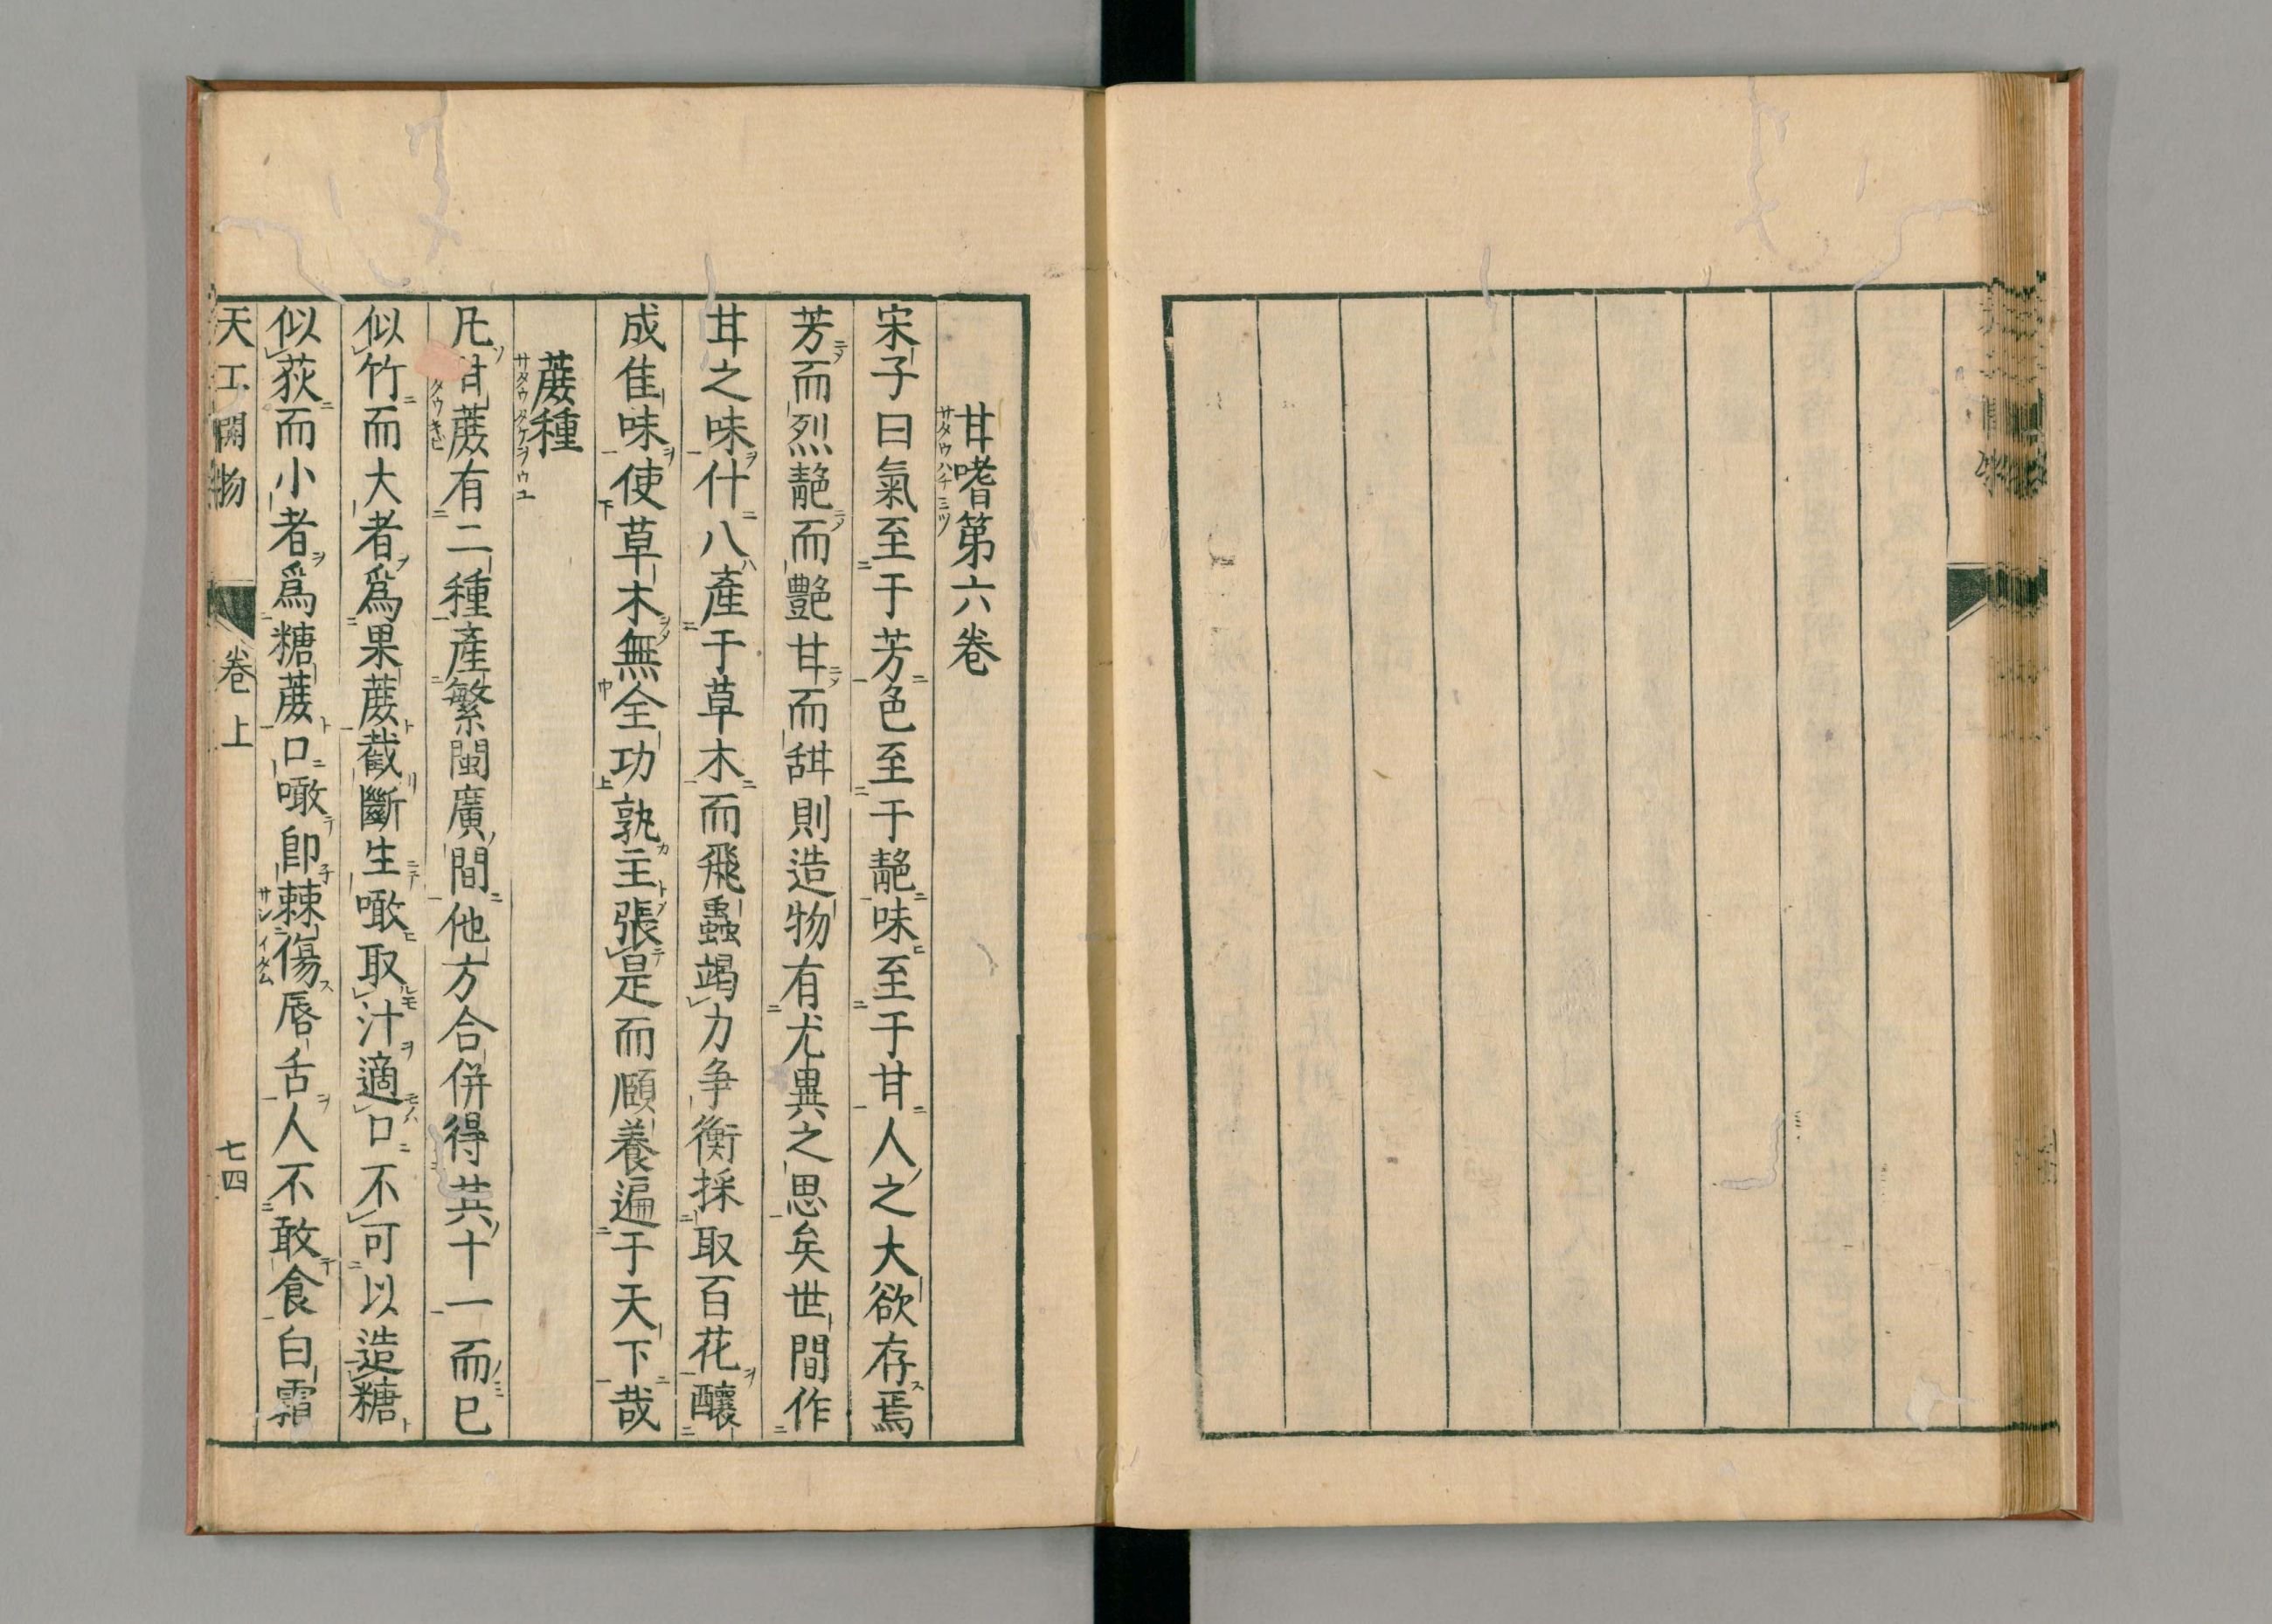 甘嗜第六卷
サタウハチミツ
宋子曰氣至于芳色至于靘味至于甘人之大欲存焉
芳而烈靘而艷甘而甛則造物有尤異之思矣世間作
甘之味什八產于草木而飛蟲竭力争衡採取百花釀
成佳味使草木無全功孰主張是而頤養遍于天下哉
蔗種
サタウタケヲウユ
凡甘蔗有二種產繁閩廣間他方合併得其十一而已
似竹而大者爲果蔗截斷生噉取汁適口不可以造糖
似荻而小者爲糖蔗口噉卽棘傷唇舌人不敢食白霜
天工開物 卷上 七四